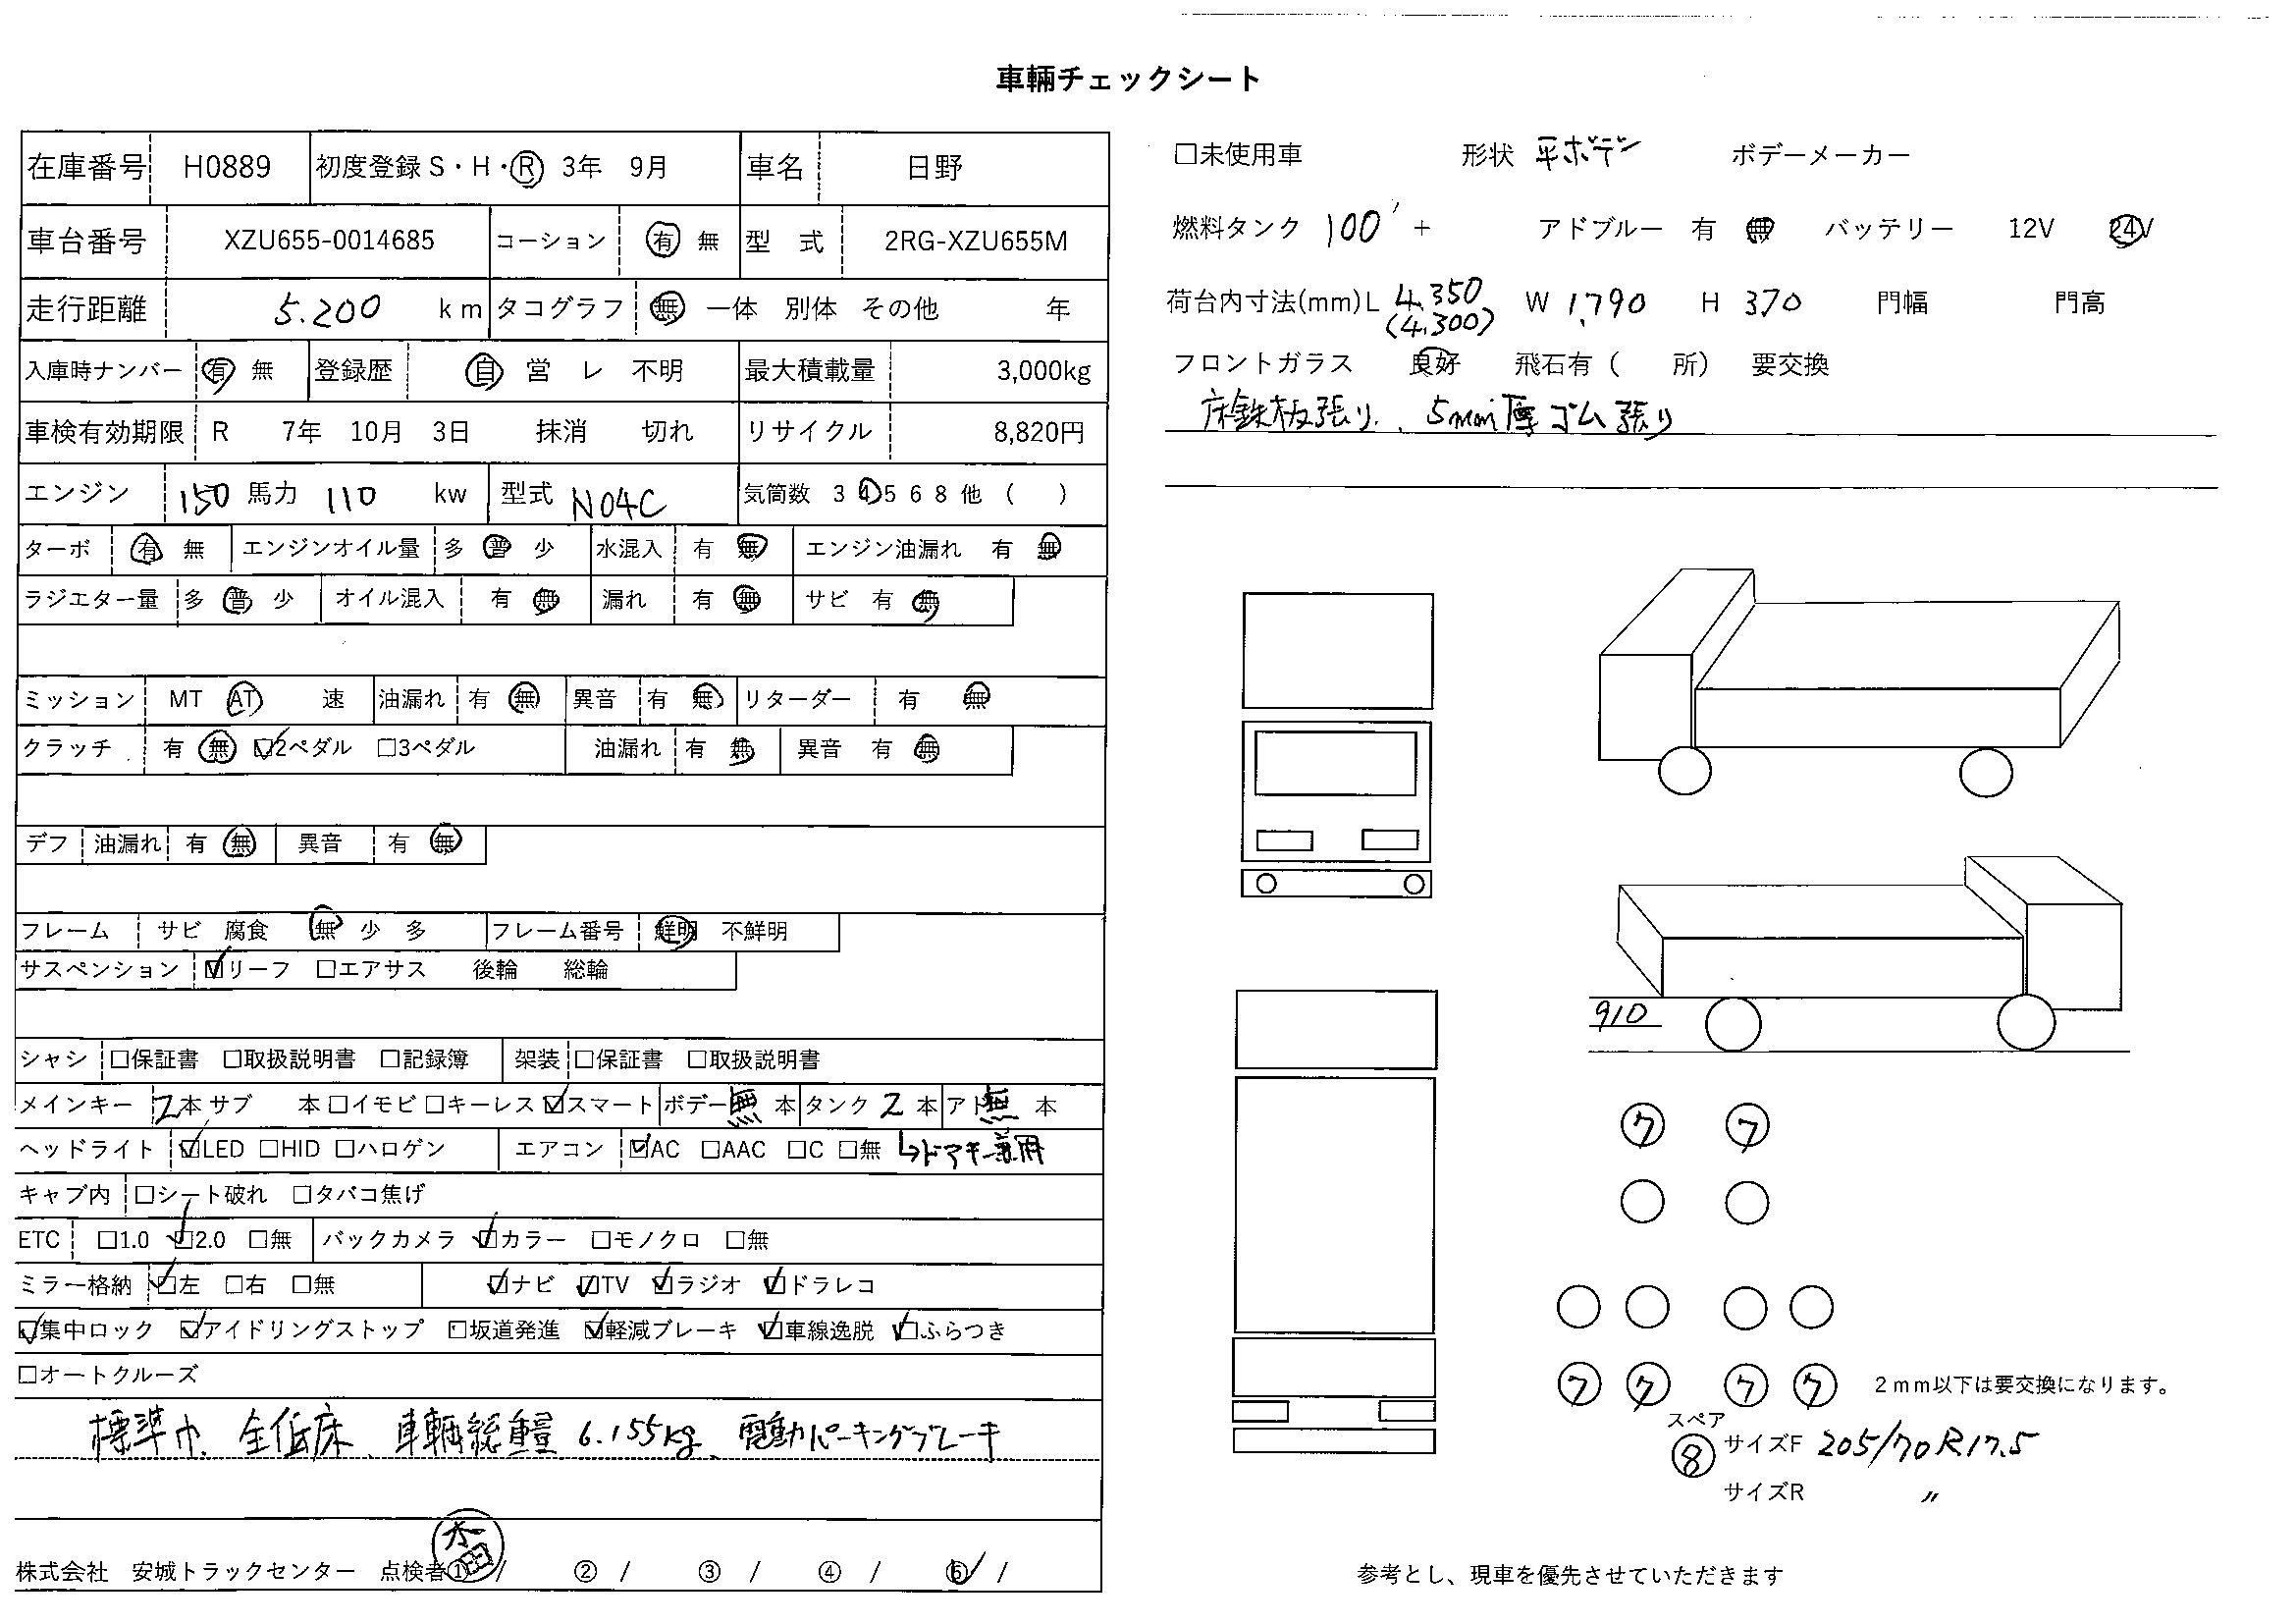 車輌チェックシート
在庫番号 H0889 初度登録 S・H・Ⓡ 3年 9月 車名 日野
車台番号 XZU655-0014685 コーション 有 無 型 式 2RG-XZU655M
走行距離 5.200 km タコグラフ 無 一体 別体 その他 年
入庫時ナンバー 有 無 登録歴 自 営 レ 不明 最大積載量 3,000kg
車検有効期限 R 7年 10月 3日 抹消 切れ リサイクル 8,820円
エンジン 150 馬力 110 kw 型式 N04C 気筒数 3 4 5 6 8 他 ( )
ターボ 有 無 エンジンオイル量 多 普 少 水混入 有 無 エンジン油漏れ 有 無
ラジエター量 多 普 少 オイル混入 有 無 漏れ 有 無 サビ 有 無
ミッション MT AT 速 油漏れ 有 無 異音 有 無 リターダー 有 無
クラッチ 有 無 ☑2ペダル □3ペダル 油漏れ 有 無 異音 有 無
デフ 油漏れ 有 無 異音 有 無
フレーム サビ 腐食 無 少 多 フレーム番号 鮮明 不鮮明
サスペンション ☑リーフ □エアサス 後輪 総輪
シャシ □保証書 □取扱説明書 □記録簿 架装 □保証書 □取扱説明書
メインキー 2本 サブ 本 □イモビ □キーレス ☑スマート ボデー 無 本 タンク 2 本 アド 無 本
ヘッドライト ☑LED □HID □ハロゲン エアコン ☑AC □AAC □C □無 ↳ドアキー兼用
キャブ内 □シート破れ □タバコ焦げ
ETC □1.0 ☑2.0 □無 バックカメラ ☑カラー □モノクロ □無
ミラー格納 ☑左 □右 □無 ☑ナビ ☑TV ☑ラジオ ☑ドラレコ
☑集中ロック ☑アイドリングストップ □坂道発進 ☑軽減ブレーキ ☑車線逸脱 ☑ふらつき
□オートクルーズ
標準巾、全低床、車輌総重量 6.155kg、電動パーキングブレーキ
株式会社 安城トラックセンター 点検者① / ② / ③ / ④ / ⑥ /
太田
□未使用車 形状 平ボデー ボデーメーカー
燃料タンク 100 + アドブルー 有 無 バッテリー 12V 24V
荷台内寸法(mm)L 4,350 W 1,790 H 370 門幅 門高
(4,300)
フロントガラス 良好 飛石有 ( 所) 要交換
床鉄板張り、5mm厚ゴム張り
910
7 7
7 7 7 7 2mm以下は要交換になります。
スペア
8 サイズF 205/70R17.5
サイズR 〃
参考とし、現車を優先させていただきます